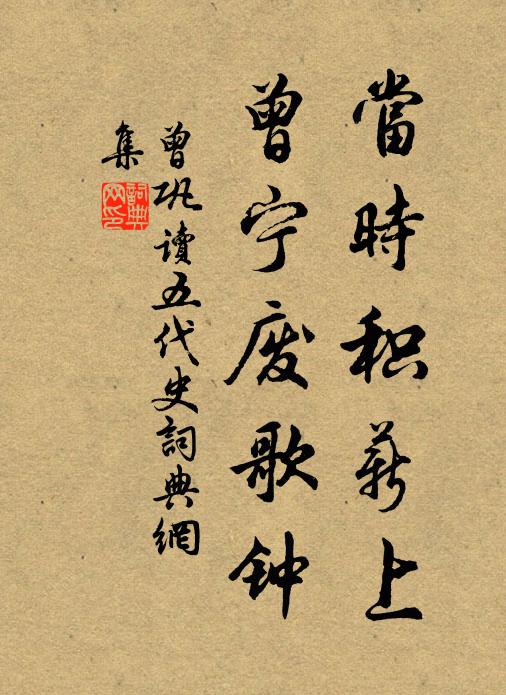 當時积薪上
曾宁废歌钟
曾巩讀五代史詞典網
集
詞典网印